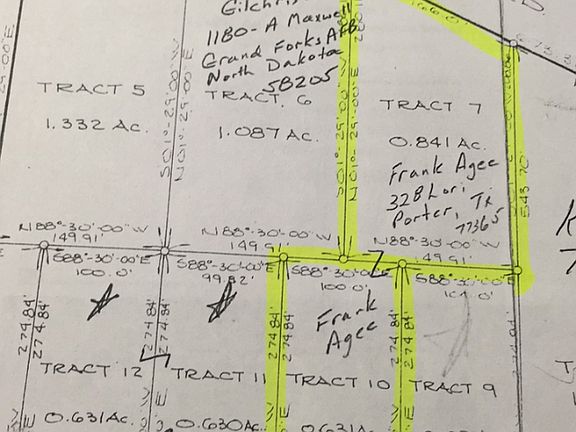 Gilchris
1180-A Maxwell
Grand Forks AFB
North Dakota
58205
TRACT 5
1.332 Ac.
TRACT 6
1.087 Ac.
TRACT 7
0.841 Ac.
Frank Agee
328 Lori
Porter, Tx
77365
S01°-29'-00" W
N01°-29'-00" E
S01°-29'-00" W
N01°-29'-00" E
543.70'
N88°-30'-00" W
149.91'
N88°-30'-00" W
149.91'
N88°-30'-00" W
149.91'
S88°-30'-00" E
100.0'
S88°-30'-00" E
99.82'
S88°-30'-00" E
100.0'
S88°-30'-00" E
274.84'
274.84'
274.84'
274.84'
274.84'
274.84'
274.84'
274.84'
Frank
Agee
TRACT 12
TRACT 11
TRACT 10
TRACT 9
0.631 Ac.
0.630 Ac.
0.631 Ac.